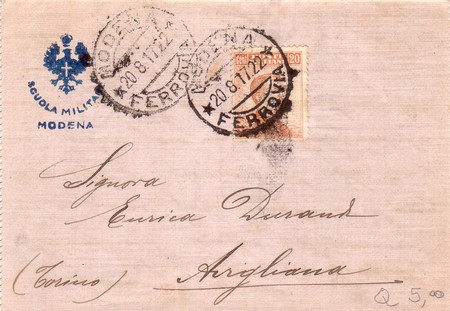 SCUOLA MILITA
MODENA
MODENA
20 8.17.22
★ FERROVIA
MODENA
20 8.17.22
★ FERROVIA
20
Signora
Enrica Durand
(Torino) Avigliana
Q 5,00